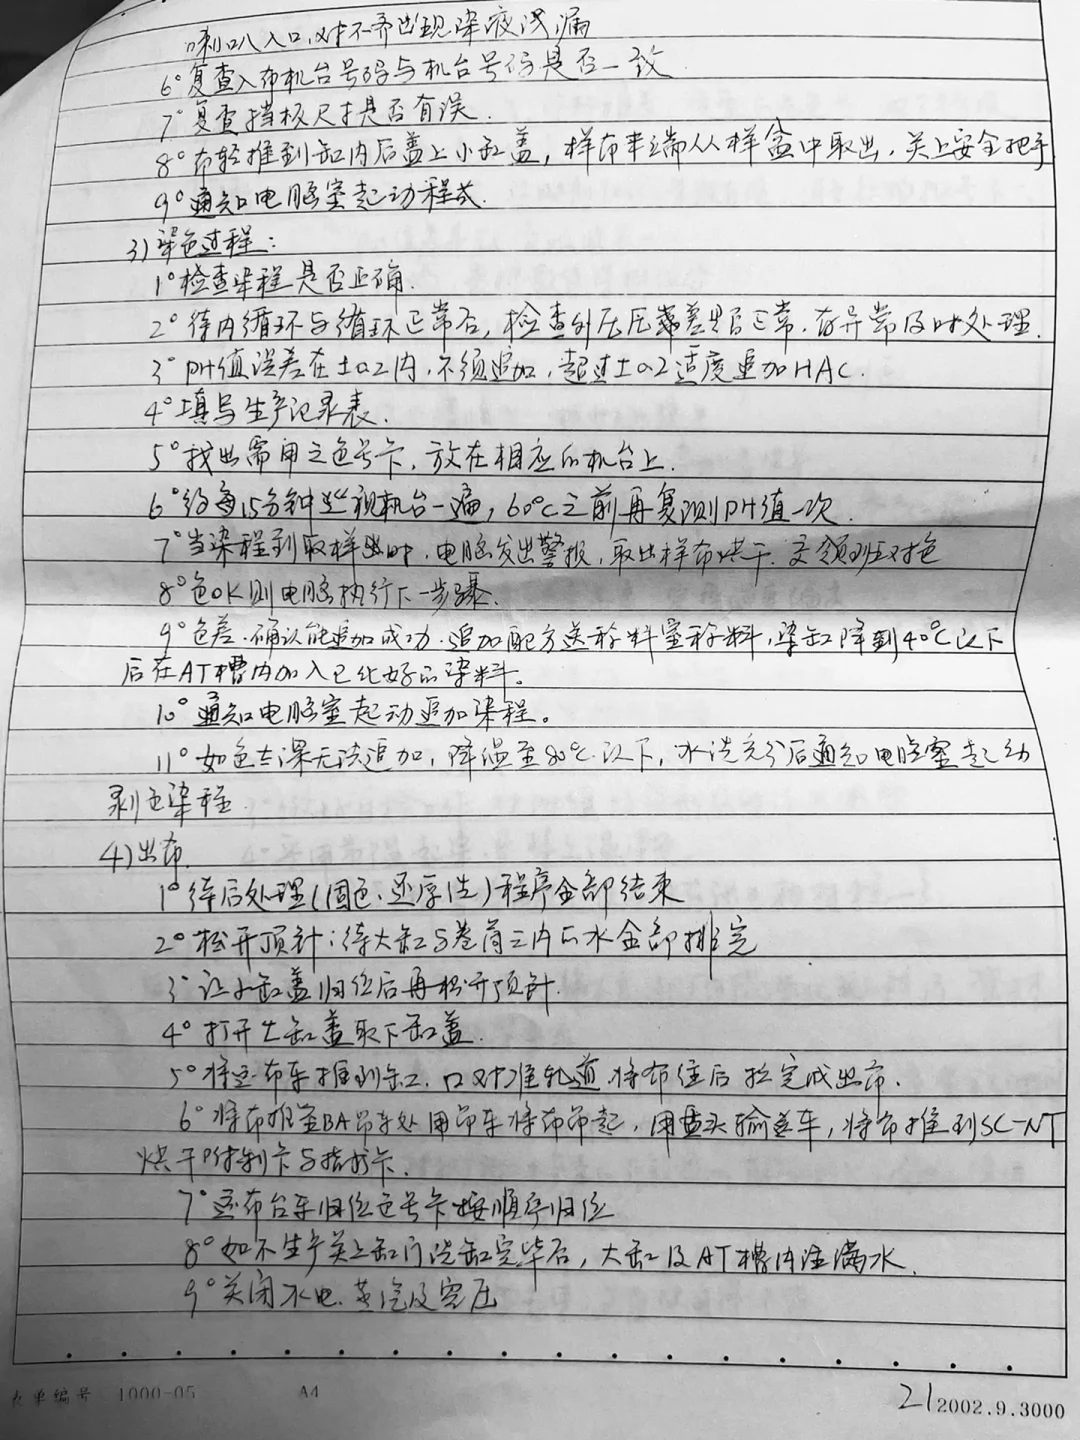 喇叭入口,对不齐出现染液泄漏
6°复查入布机台号码与机台号码是否一致
7°复查挡板尺寸是否有误.
8°布轻推到缸内后盖上小缸盖,样布末端从样盒中取出,关上安全把手
9°通知电脑室起动程式.
3)染色过程:
1°检查染程是否正确.
2°待内循环与循环正常后,检查外压压差是否正常.有异常及时处理.
3°PH值误差在±0.2内,不须追加,超过±0.2适度追加HAC.
4°填写生产记录表.
5°找出需用之色号卡,放在相应的机台上.
6°约每15分钟巡视机台一遍,60℃之前再复测PH值一次.
7°当染程到取样出时,电脑发出警报,取出样布烘干.交领班对色
8°色OK则电脑执行下一步骤.
9°色差.确认能追加成功.追加配方送称料室称料,染缸降到40℃以下
后在AT槽内加入已化好的染料。
10°通知电脑室起动追加染程。
11°如色太深无法追加,降温至80℃以下,水洗充分后通知电脑室起动
剥色染程.
4)出布.
1°待后处理(固色.还原洗)程序全部结束
2°松开顶针:待大缸与卷筒之内的水全部排完
3°让小缸盖归位后再松开顶针.
4°打开大缸盖取下缸盖.
5°将空布车推到缸口对准轨道.将布往后拉完成出布.
6°将布推至BA吊车处用吊车将布吊起,用输送车,将布推到SC-NT
烘干附制卡与指排卡.
7°空布台车归位色号卡按顺序归位
8°如不生产关上缸门洗缸完毕后,大缸及AT槽内注满水.
9°关闭水电.蒸汽及空压
表单编号 1000-05 A4 21 2002.9.3000